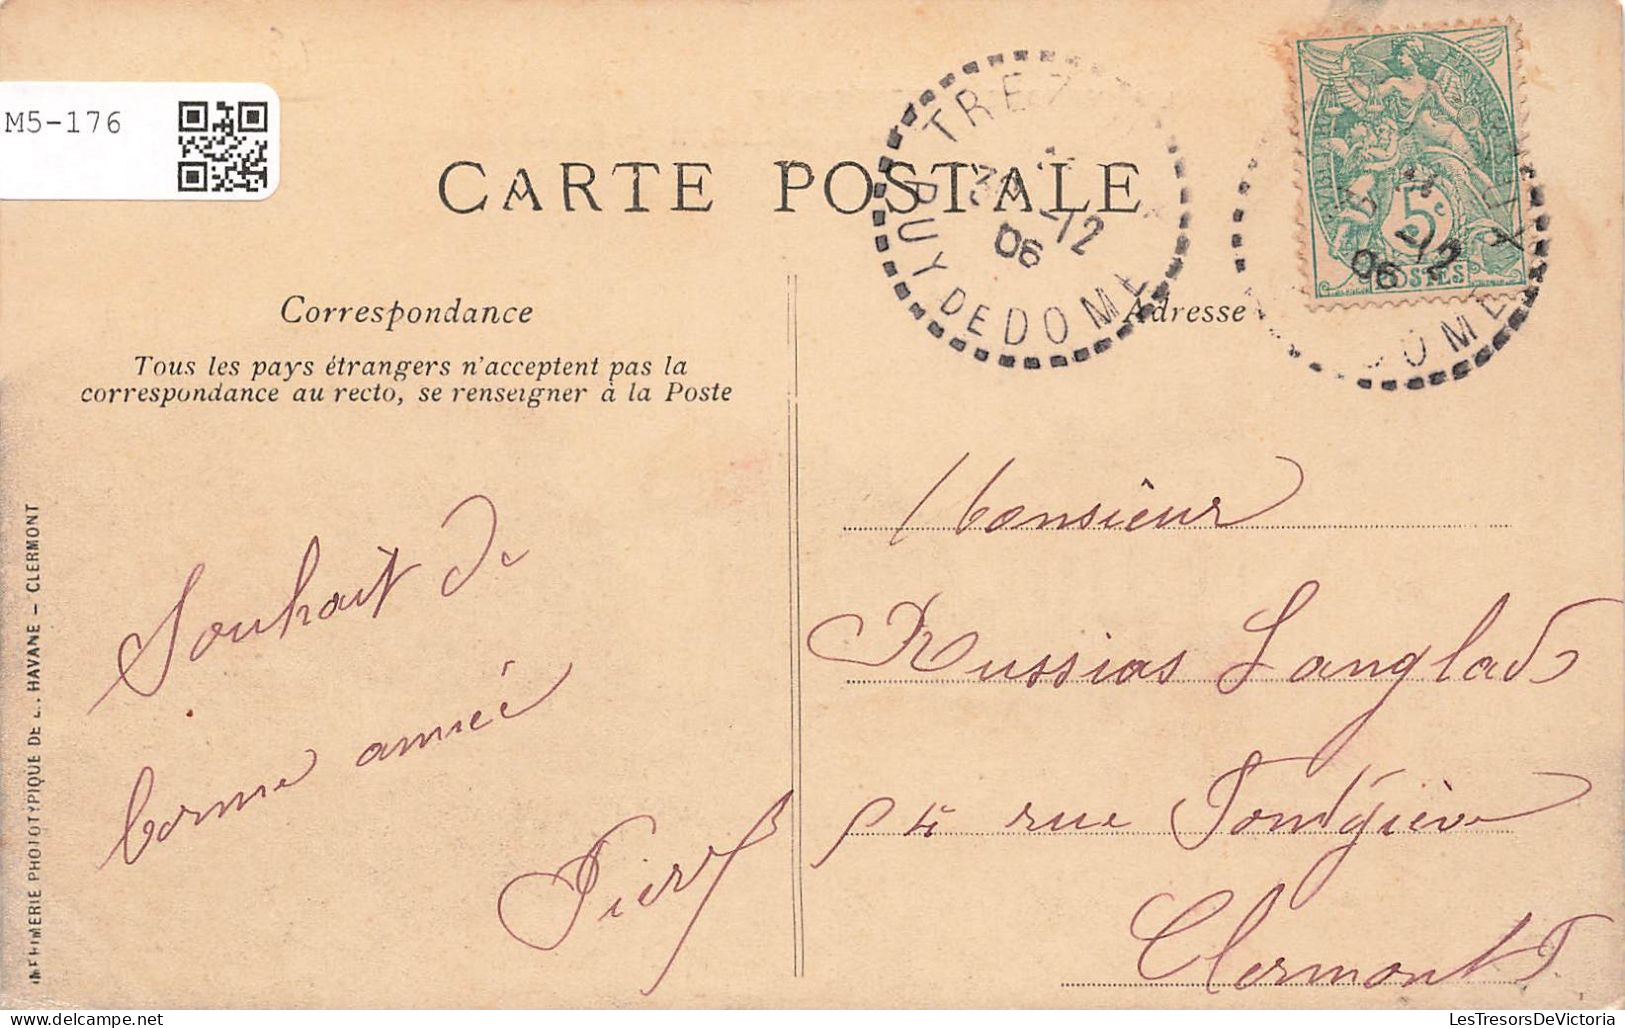 M5-176
CARTE POSTALE
TREZ
PUY DE DOME
-12
06
5c
POSTES
-12
06
DOME
Correspondance
Adresse
Tous les pays étrangers n'acceptent pas la
correspondance au recto, se renseigner à la Poste
Souhait de
bonne année
Monsieur
Russias Langlade
rue
Clermont
IMPRIMERIE PHOTOTYPIQUE DE L. HAVANE - CLERMONT
LesTresorsDeVictoria